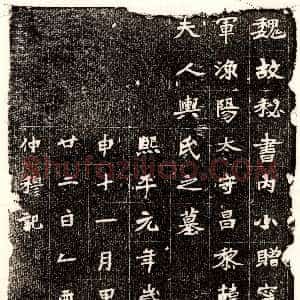 魏故秘書內小贈
軍漁陽太守昌黎
夫人輿氏之墓
熙平元年歲
申十一月甲
廿二日乙酉
仲穆記